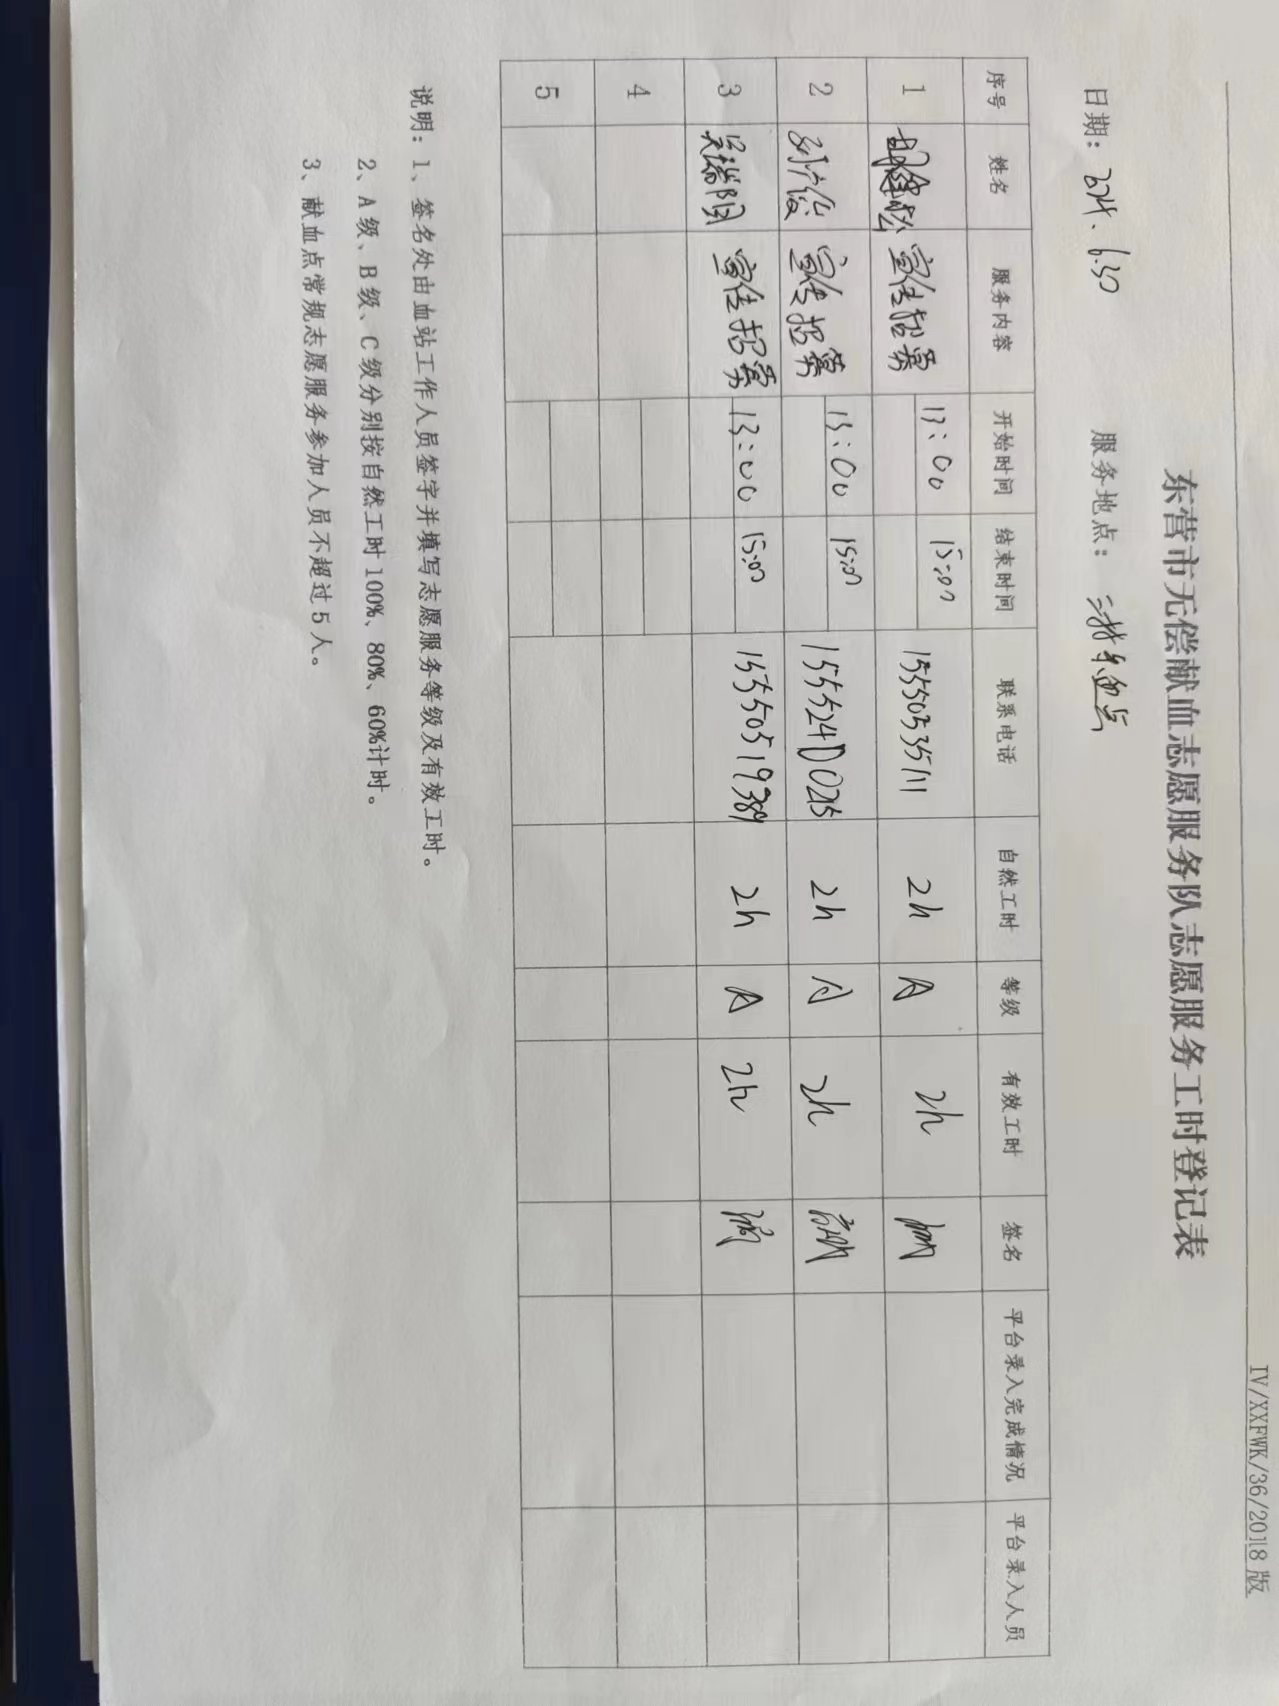 IV/XXFWK/36/2018版
东营市无偿献血志愿服务队志愿服务工时登记表
日期: 2024.6.30 服务地点:
序号 姓名 服务内容 开始时间 结束时间 联系电话 自然工时 等级 有效工时 签名 平台录入完成情况 平台录入人员
1 宣传招募 13:00 15:00 15550535111 2h A 2h
2 宣传招募 13:00 15:00 2h A 2h
3 吴瑞阳 宣传招募 13:00 15:00 15550519389 2h A 2h
4
5
说明: 1、签名处由血站工作人员签字并填写志愿服务等级及有效工时。
2、A级、B级、C级分别按自然工时100%、80%、60%计时。
3、献血点常规志愿服务参加人员不超过5人。